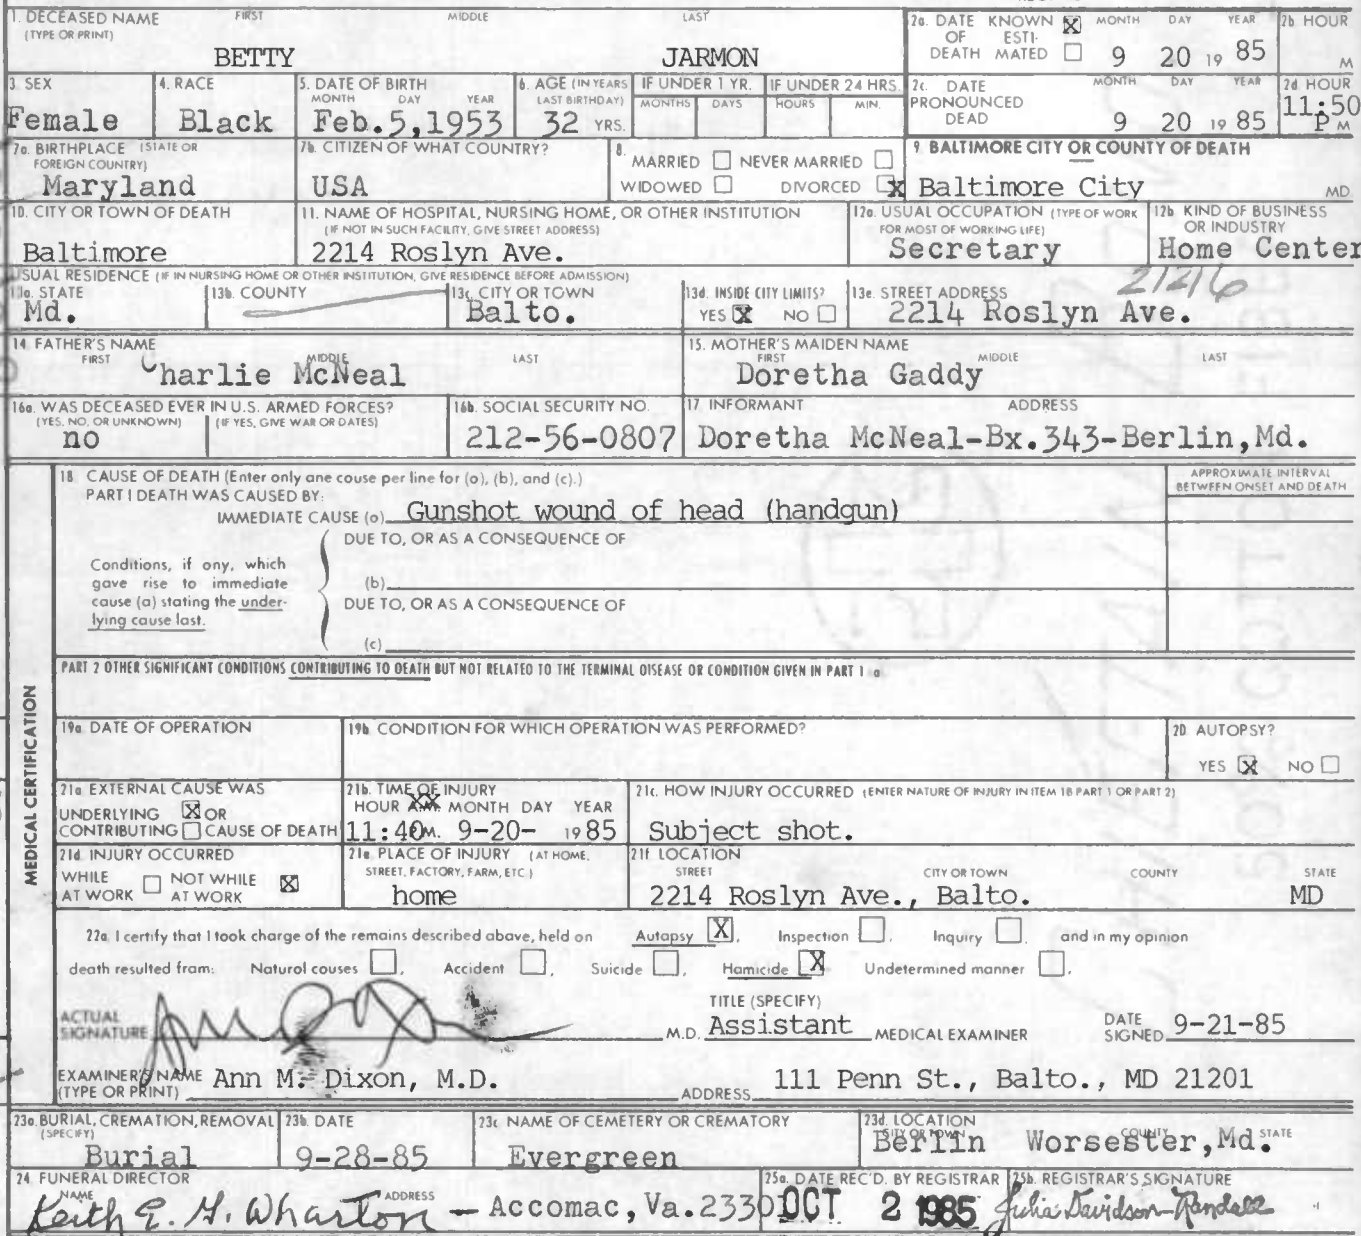 1. DECEASED NAME FIRST MIDDLE LAST
(TYPE OR PRINT)
BETTY JARMON
2a. DATE KNOWN X MONTH DAY YEAR 2b HOUR
OF ESTI-
DEATH MATED 9 20 19 85 M
3. SEX 4. RACE 5. DATE OF BIRTH 6. AGE (IN YEARS IF UNDER 1 YR. IF UNDER 24 HRS.
MONTH DAY YEAR LAST BIRTHDAY) MONTHS DAYS HOURS MIN.
Female Black Feb.5,1953 32 YRS.
2c. DATE MONTH DAY YEAR 2d HOUR
PRONOUNCED
DEAD 9 20 19 85 11:50 P M
7a. BIRTHPLACE (STATE OR
FOREIGN COUNTRY)
Maryland
7b. CITIZEN OF WHAT COUNTRY?
USA
8. MARRIED NEVER MARRIED
WIDOWED DIVORCED X
9. BALTIMORE CITY OR COUNTY OF DEATH
Baltimore City MD.
10. CITY OR TOWN OF DEATH
Baltimore
11. NAME OF HOSPITAL, NURSING HOME, OR OTHER INSTITUTION
(IF NOT IN SUCH FACILITY, GIVE STREET ADDRESS)
2214 Roslyn Ave.
12a. USUAL OCCUPATION (TYPE OF WORK
FOR MOST OF WORKING LIFE)
Secretary
12b. KIND OF BUSINESS
OR INDUSTRY
Home Center
USUAL RESIDENCE (IF IN NURSING HOME OR OTHER INSTITUTION, GIVE RESIDENCE BEFORE ADMISSION)
13a. STATE
Md.
13b. COUNTY
13c. CITY OR TOWN
Balto.
13d. INSIDE CITY LIMITS?
YES X NO
13e. STREET ADDRESS 21216
2214 Roslyn Ave.
14. FATHER'S NAME
FIRST MIDDLE LAST
Charlie McNeal
15. MOTHER'S MAIDEN NAME
FIRST MIDDLE LAST
Doretha Gaddy
16a. WAS DECEASED EVER IN U.S. ARMED FORCES?
(YES, NO, OR UNKNOWN) (IF YES, GIVE WAR OR DATES)
no
16b. SOCIAL SECURITY NO.
212-56-0807
17. INFORMANT ADDRESS
Doretha McNeal-Bx.343-Berlin,Md.
MEDICAL CERTIFICATION
18. CAUSE OF DEATH (Enter only one cause per line for (a), (b), and (c).)
PART I DEATH WAS CAUSED BY:
IMMEDIATE CAUSE (a) Gunshot wound of head (handgun)
APPROXIMATE INTERVAL
BETWEEN ONSET AND DEATH
DUE TO, OR AS A CONSEQUENCE OF
Conditions, if any, which
gave rise to immediate
cause (a) stating the under-
lying cause last.
(b)
DUE TO, OR AS A CONSEQUENCE OF
(c)
PART 2 OTHER SIGNIFICANT CONDITIONS CONTRIBUTING TO DEATH BUT NOT RELATED TO THE TERMINAL DISEASE OR CONDITION GIVEN IN PART 1 a
19a. DATE OF OPERATION
19b. CONDITION FOR WHICH OPERATION WAS PERFORMED?
20. AUTOPSY?
YES X NO
21a. EXTERNAL CAUSE WAS
UNDERLYING X OR
CONTRIBUTING CAUSE OF DEATH
21b. TIME OF INJURY
HOUR A.M. MONTH DAY YEAR
11:40 P.M. 9-20- 1985
21c. HOW INJURY OCCURRED (ENTER NATURE OF INJURY IN ITEM 18 PART 1 OR PART 2)
Subject shot.
21d. INJURY OCCURRED
WHILE NOT WHILE X
AT WORK AT WORK
21e. PLACE OF INJURY (AT HOME,
STREET, FACTORY, FARM, ETC.)
home
21f. LOCATION
STREET CITY OR TOWN COUNTY STATE
2214 Roslyn Ave., Balto. MD
22a. I certify that I took charge of the remains described above, held on Autopsy X, Inspection , Inquiry , and in my opinion
death resulted from: Natural causes , Accident , Suicide , Homicide X Undetermined manner .
ACTUAL
SIGNATURE
TITLE (SPECIFY)
M.D. Assistant MEDICAL EXAMINER
DATE
SIGNED 9-21-85
EXAMINER'S NAME Ann M. Dixon, M.D.
(TYPE OR PRINT)
ADDRESS 111 Penn St., Balto., MD 21201
23a. BURIAL, CREMATION, REMOVAL
(SPECIFY)
Burial
23b. DATE
9-28-85
23c. NAME OF CEMETERY OR CREMATORY
Evergreen
23d. LOCATION
CITY OR TOWN COUNTY STATE
Berlin Worsester,Md.
24. FUNERAL DIRECTOR
NAME ADDRESS
Keith E. H. Wharton — Accomac, Va.2330
25a. DATE REC'D. BY REGISTRAR
OCT 2 1985
25b. REGISTRAR'S SIGNATURE
Julia Davidson-Randall